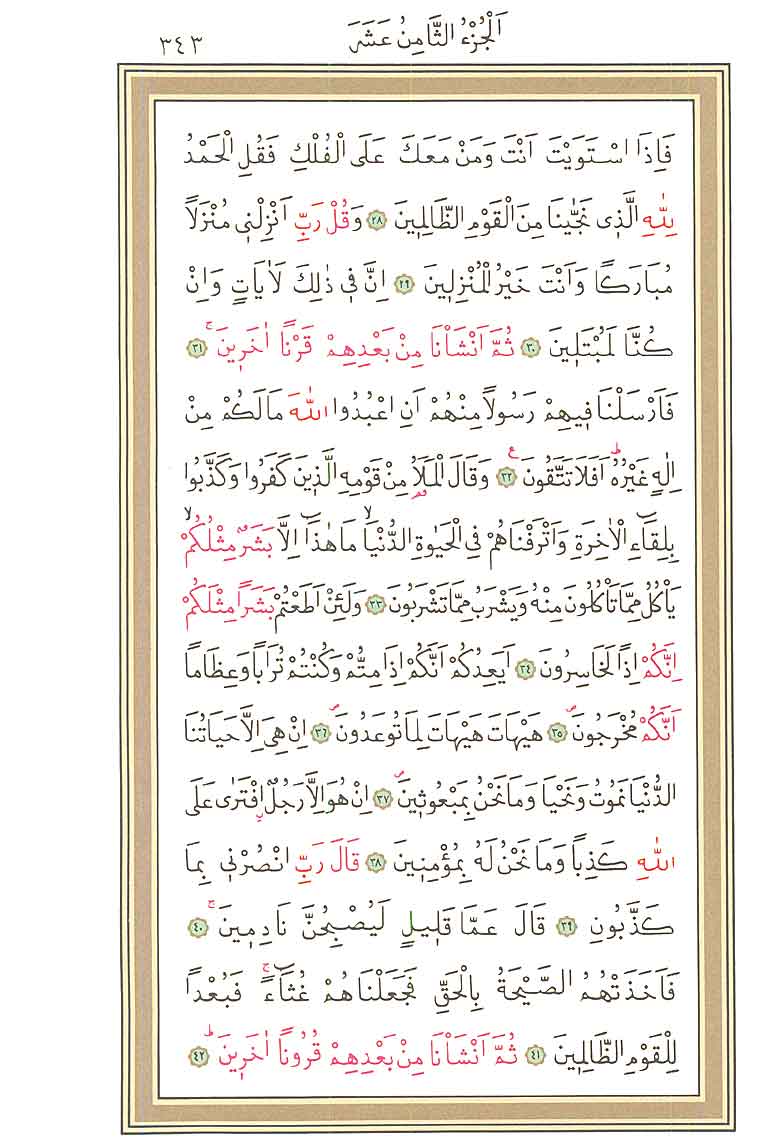 اَلْجُزْءُ الثَّامِنُ عَشَرَ ٣٤٣
فَاِذَا اسْتَوَيْتَ اَنْتَ وَمَنْ مَعَكَ عَلَى الْفُلْكِ فَقُلِ الْحَمْدُ
لِلّٰهِ الَّذ۪ى نَجّٰينَا مِنَ الْقَوْمِ الظَّالِم۪ينَ ﴿٢٨﴾ وَقُلْ رَبِّ اَنْزِلْن۪ى مُنْزَلًا
مُبَارَكًا وَاَنْتَ خَيْرُ الْمُنْزِل۪ينَ ﴿٢٩﴾ اِنَّ ف۪ى ذٰلِكَ لَاٰيَاتٍ وَاِنْ
كُنَّا لَمُبْتَل۪ينَ ﴿٣٠﴾ ثُمَّ اَنْشَاْنَا مِنْ بَعْدِهِمْ قَرْنًا اٰخَر۪ينَۚ ﴿٣١﴾
فَاَرْسَلْنَا ف۪يهِمْ رَسُولًا مِنْهُمْ اَنِ اعْبُدُوا اللّٰهَ مَا لَكُمْ مِنْ
اِلٰهٍ غَيْرُهُۜ اَفَلَا تَتَّقُونَ ﴿٣٢﴾ وَقَالَ الْمَلَاُ مِنْ قَوْمِهِ الَّذ۪ينَ كَفَرُوا وَكَذَّبُوا
بِلِقَٓاءِ الْاٰخِرَةِ وَاَتْرَفْنَاهُمْ فِى الْحَيٰوةِ الدُّنْيَاۙ مَا هٰذَٓا اِلَّا بَشَرٌ مِثْلُكُمْۙ
يَاْكُلُ مِمَّا تَاْكُلُونَ مِنْهُ وَيَشْرَبُ مِمَّا تَشْرَبُونَ ﴿٣٣﴾ وَلَئِنْ اَطَعْتُمْ بَشَرًا مِثْلَكُمْ
اِنَّكُمْ اِذًا لَخَاسِرُونَ ﴿٣٤﴾ اَيَعِدُكُمْ اَنَّكُمْ اِذَا مِتُّمْ وَكُنْتُمْ تُرَابًا وَعِظَامًا
اَنَّكُمْ مُخْرَجُونَ ﴿٣٥﴾ هَيْهَاتَ هَيْهَاتَ لِمَا تُوعَدُونَ ﴿٣٦﴾ اِنْ هِىَ اِلَّا حَيَاتُنَا
الدُّنْيَا نَمُوتُ وَنَحْيَا وَمَا نَحْنُ بِمَبْعُوث۪ينَ ﴿٣٧﴾ اِنْ هُوَ اِلَّا رَجُلٌ افْتَرٰى عَلَى
اللّٰهِ كَذِبًا وَمَا نَحْنُ لَهُ بِمُؤْمِن۪ينَ ﴿٣٨﴾ قَالَ رَبِّ انْصُرْن۪ى بِمَا
كَذَّبُونِ ﴿٣٩﴾ قَالَ عَمَّا قَل۪يلٍ لَيُصْبِحُنَّ نَادِم۪ينَۚ ﴿٤٠﴾
فَاَخَذَتْهُمُ الصَّيْحَةُ بِالْحَقِّ فَجَعَلْنَاهُمْ غُثَٓاءًۚ فَبُعْدًا
لِلْقَوْمِ الظَّالِم۪ينَ ﴿٤١﴾ ثُمَّ اَنْشَاْنَا مِنْ بَعْدِهِمْ قُرُونًا اٰخَر۪ينَۜ ﴿٤٢﴾